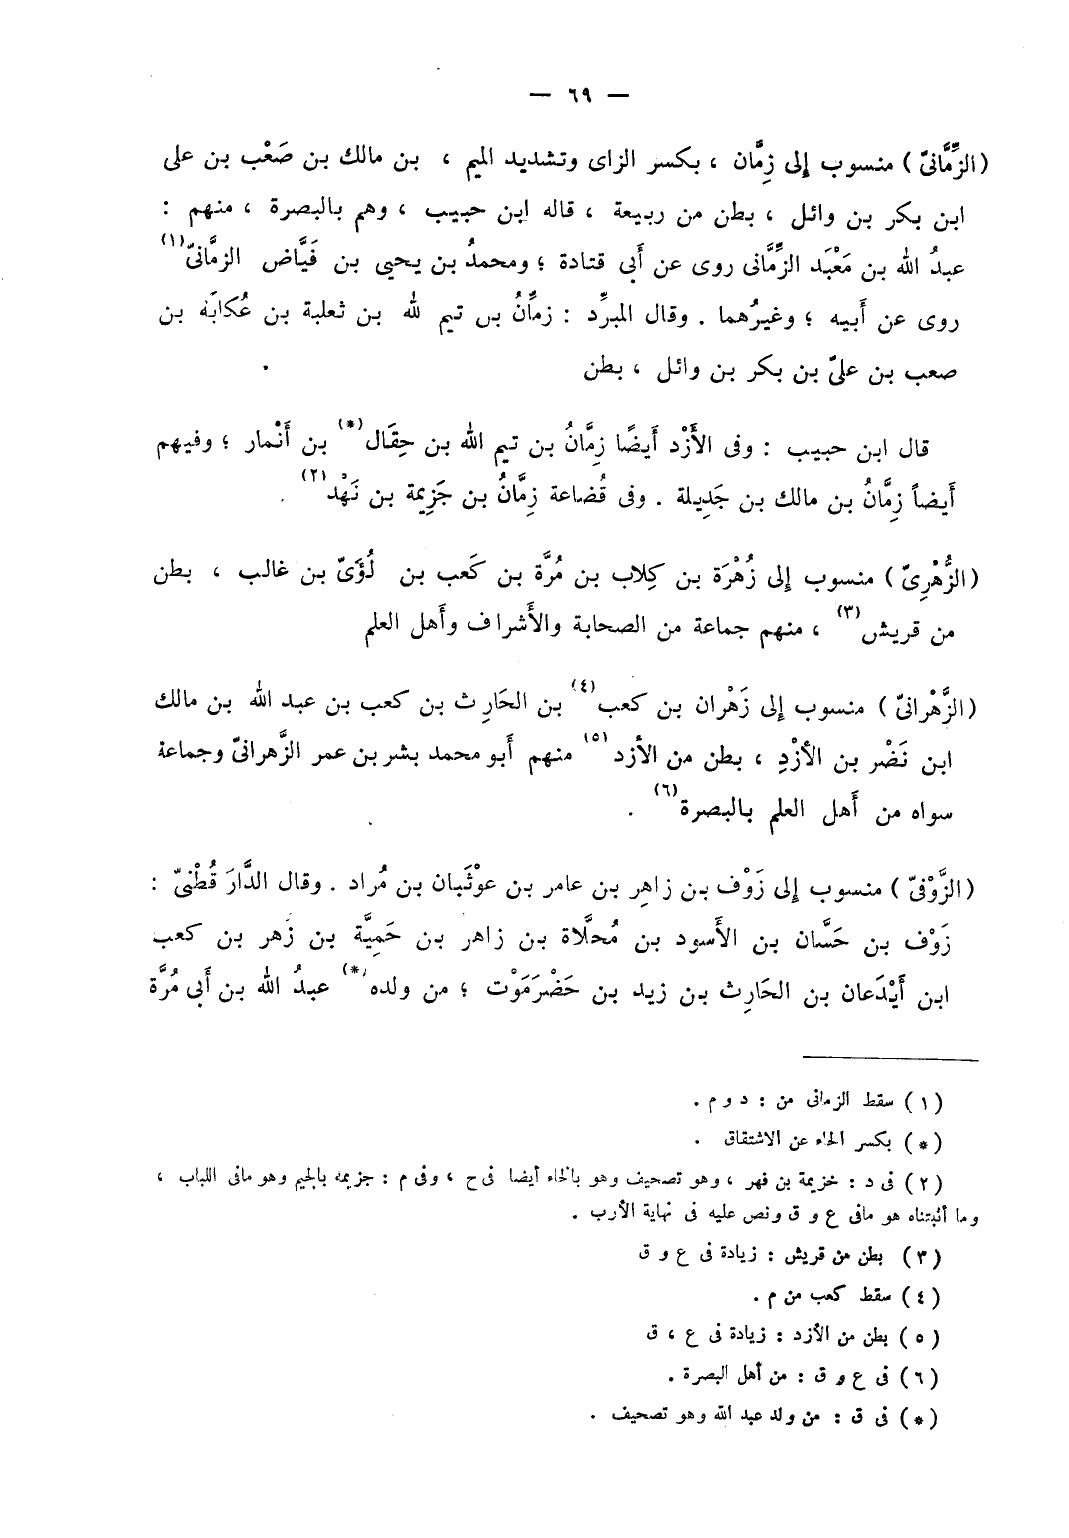 — ٦٩ —
( الزِّمَّانىّ ) منسوب إلى زِمَّان ، بكسر الزاى وتشديد الميم ، بن مالك بن صَعْب بن على
ابن بكر بن وائل ، بطن من ربيعة ، قاله ابن حبيب ، وهم بالبصرة ، منهم :
عبدُ الله بن مَعْبَد الزِّمَّانى روى عن أَبى قتادة ؛ ومحمدُ بن يحيى بن فَيَّاض الزمَّانىّ(١)
روى عن أَبيه ؛ وغيرُهما . وقال المبرِّد : زمَّانُ بن تيم لله بن ثعلبة بن عُكابَة بن
صعب بن علىّ بن بكر بن وائل ، بطن .
قال ابن حبيب : وفى الأَزْد أَيضًا زِمَّانُ بن تيم الله بن حِقَال(*) بن أَنْمار ؛ وفيهم
أَيضاً زِمَّانُ بن مالك بن جَدِيلة . وفى قُضاعة زِمَّانُ بن جَزِيمة بن نَهْد(٢) .
( الزُّهْرِىّ ) منسوب إلى زُهْرَة بن كِلاب بن مُرَّة بن كَعب بن لُؤَىّ بن غالب ، بطن
من قريش(٣) ، منهم جماعة من الصحابة والأَشراف وأَهل العلم
( الزَّهْرانىّ ) منسوب إلى زَهْران بن كعب(٤) بن الحَارِث بن كعب بن عبد الله بن مالك
ابن نَضْر بن الأزْدِ ، بطن من الأزد(٥) منهم أَبو محمد بشر بن عمر الزَّهرانىّ وجماعة
سواه من أَهل العلم بالبصرة(٦) .
( الزَّوْفىّ ) منسوب إلى زَوْف بن زاهِر بن عامر بن عوْثَبان بن مُراد . وقال الدَّارَ قُطْنىّ :
زَوْف بن حَسَّان بن الأَسود بن مُحلَّاة بن زاهر بن حَمِيَّة بن زَهر بن كعب
ابن أَيْدَعان بن الحَارِث بن زيد بن حَضْرَمَوْت ؛ من ولده(*) عبدُ الله بن أَبى مُرَّة
( ١ ) سقط الزمانى من : د و م .
( * ) بكسر الحاء عن الاشتقاق .
( ٢ ) فى د : خزيمة بن فهر ، وهو تصحيف وهو بالخاء أيضا فى ح ، وفى م : جزيمة بالجيم وهو مافى اللباب ،
وما أثبتناه هو مافى ع و ق ونص عليه فى نهاية الأرب .
( ٣ ) بطن من قريش : زيادة فى ع و ق
( ٤ ) سقط كعب من م .
( ٥ ) بطن من الأزد : زيادة فى ع ، ق
( ٦ ) فى ع و ق : من أهل البصرة .
( * ) فى ق : من ولد عبد الله وهو تصحيف .